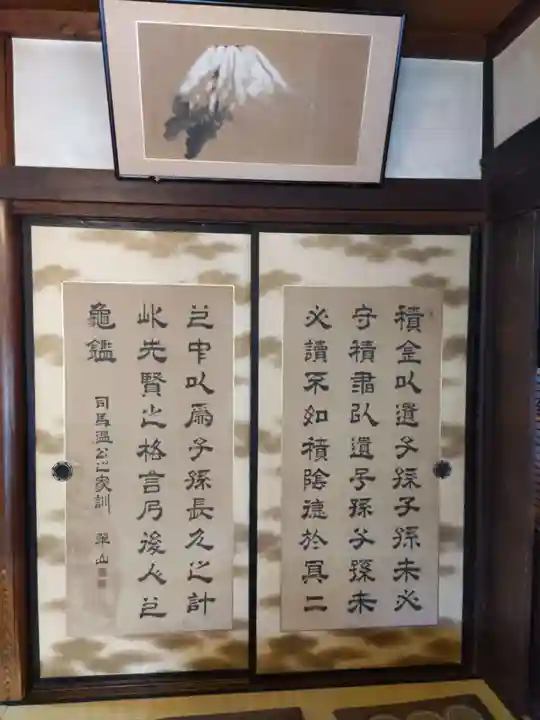 積金以遺子孫子孫未必
守積書以遺子孫子孫未
必讀不如積陰德於冥二
之中以爲子孫長久之計
此先賢之格言乃後人之
龜鑑
司馬温公之家訓
山